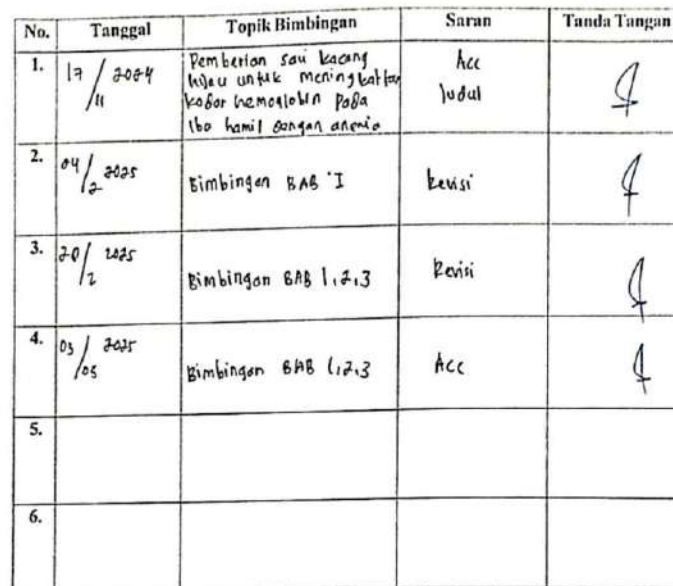 No. Tanggal Topik Bimbingan Saran Tanda Tangan
1. 17/11 2024 Pemberian sari kacang Acc
hijau untuk meningkatkan Judul
kadar hemoglobin pada
ibu hamil dengan anemia
2. 04/2 2025 Bimbingan BAB I Revisi
3. 20/2 2025 Bimbingan BAB 1,2,3 Revisi
4. 03/05 2025 Bimbingan BAB 1,2,3 Acc
5.
6.